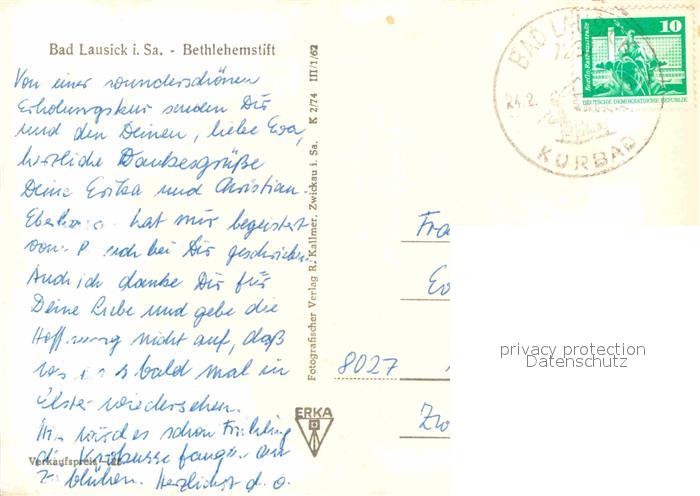 Bad Lausick i. Sa. - Bethlehemstift
Von einer wunderschönen
Erholungskur senden Dir
und den Deinen, liebe Eva,
herzliche Dankesgrüße
Deine Erika und Christian-
hat mir begeistert
vom bei Dir geschrieben.
Auch ich danke Dir für
Deine Liebe und gebe die
Hoffnung nicht auf, daß
bald mal in
Elster wiedersehen.
wird es schon Frühling
die
zu blühen. Herzlichst d. o.
Verkaufspreis
Fotografischer Verlag R. Kallmer, Zwickau i. Sa. K 2/74 III/1/62
ERKA
BAD
24.2.
KURBAD
10
DEUTSCHE DEMOKRATISCHE REPUBLIK
8027
privacy protection
Datenschutz